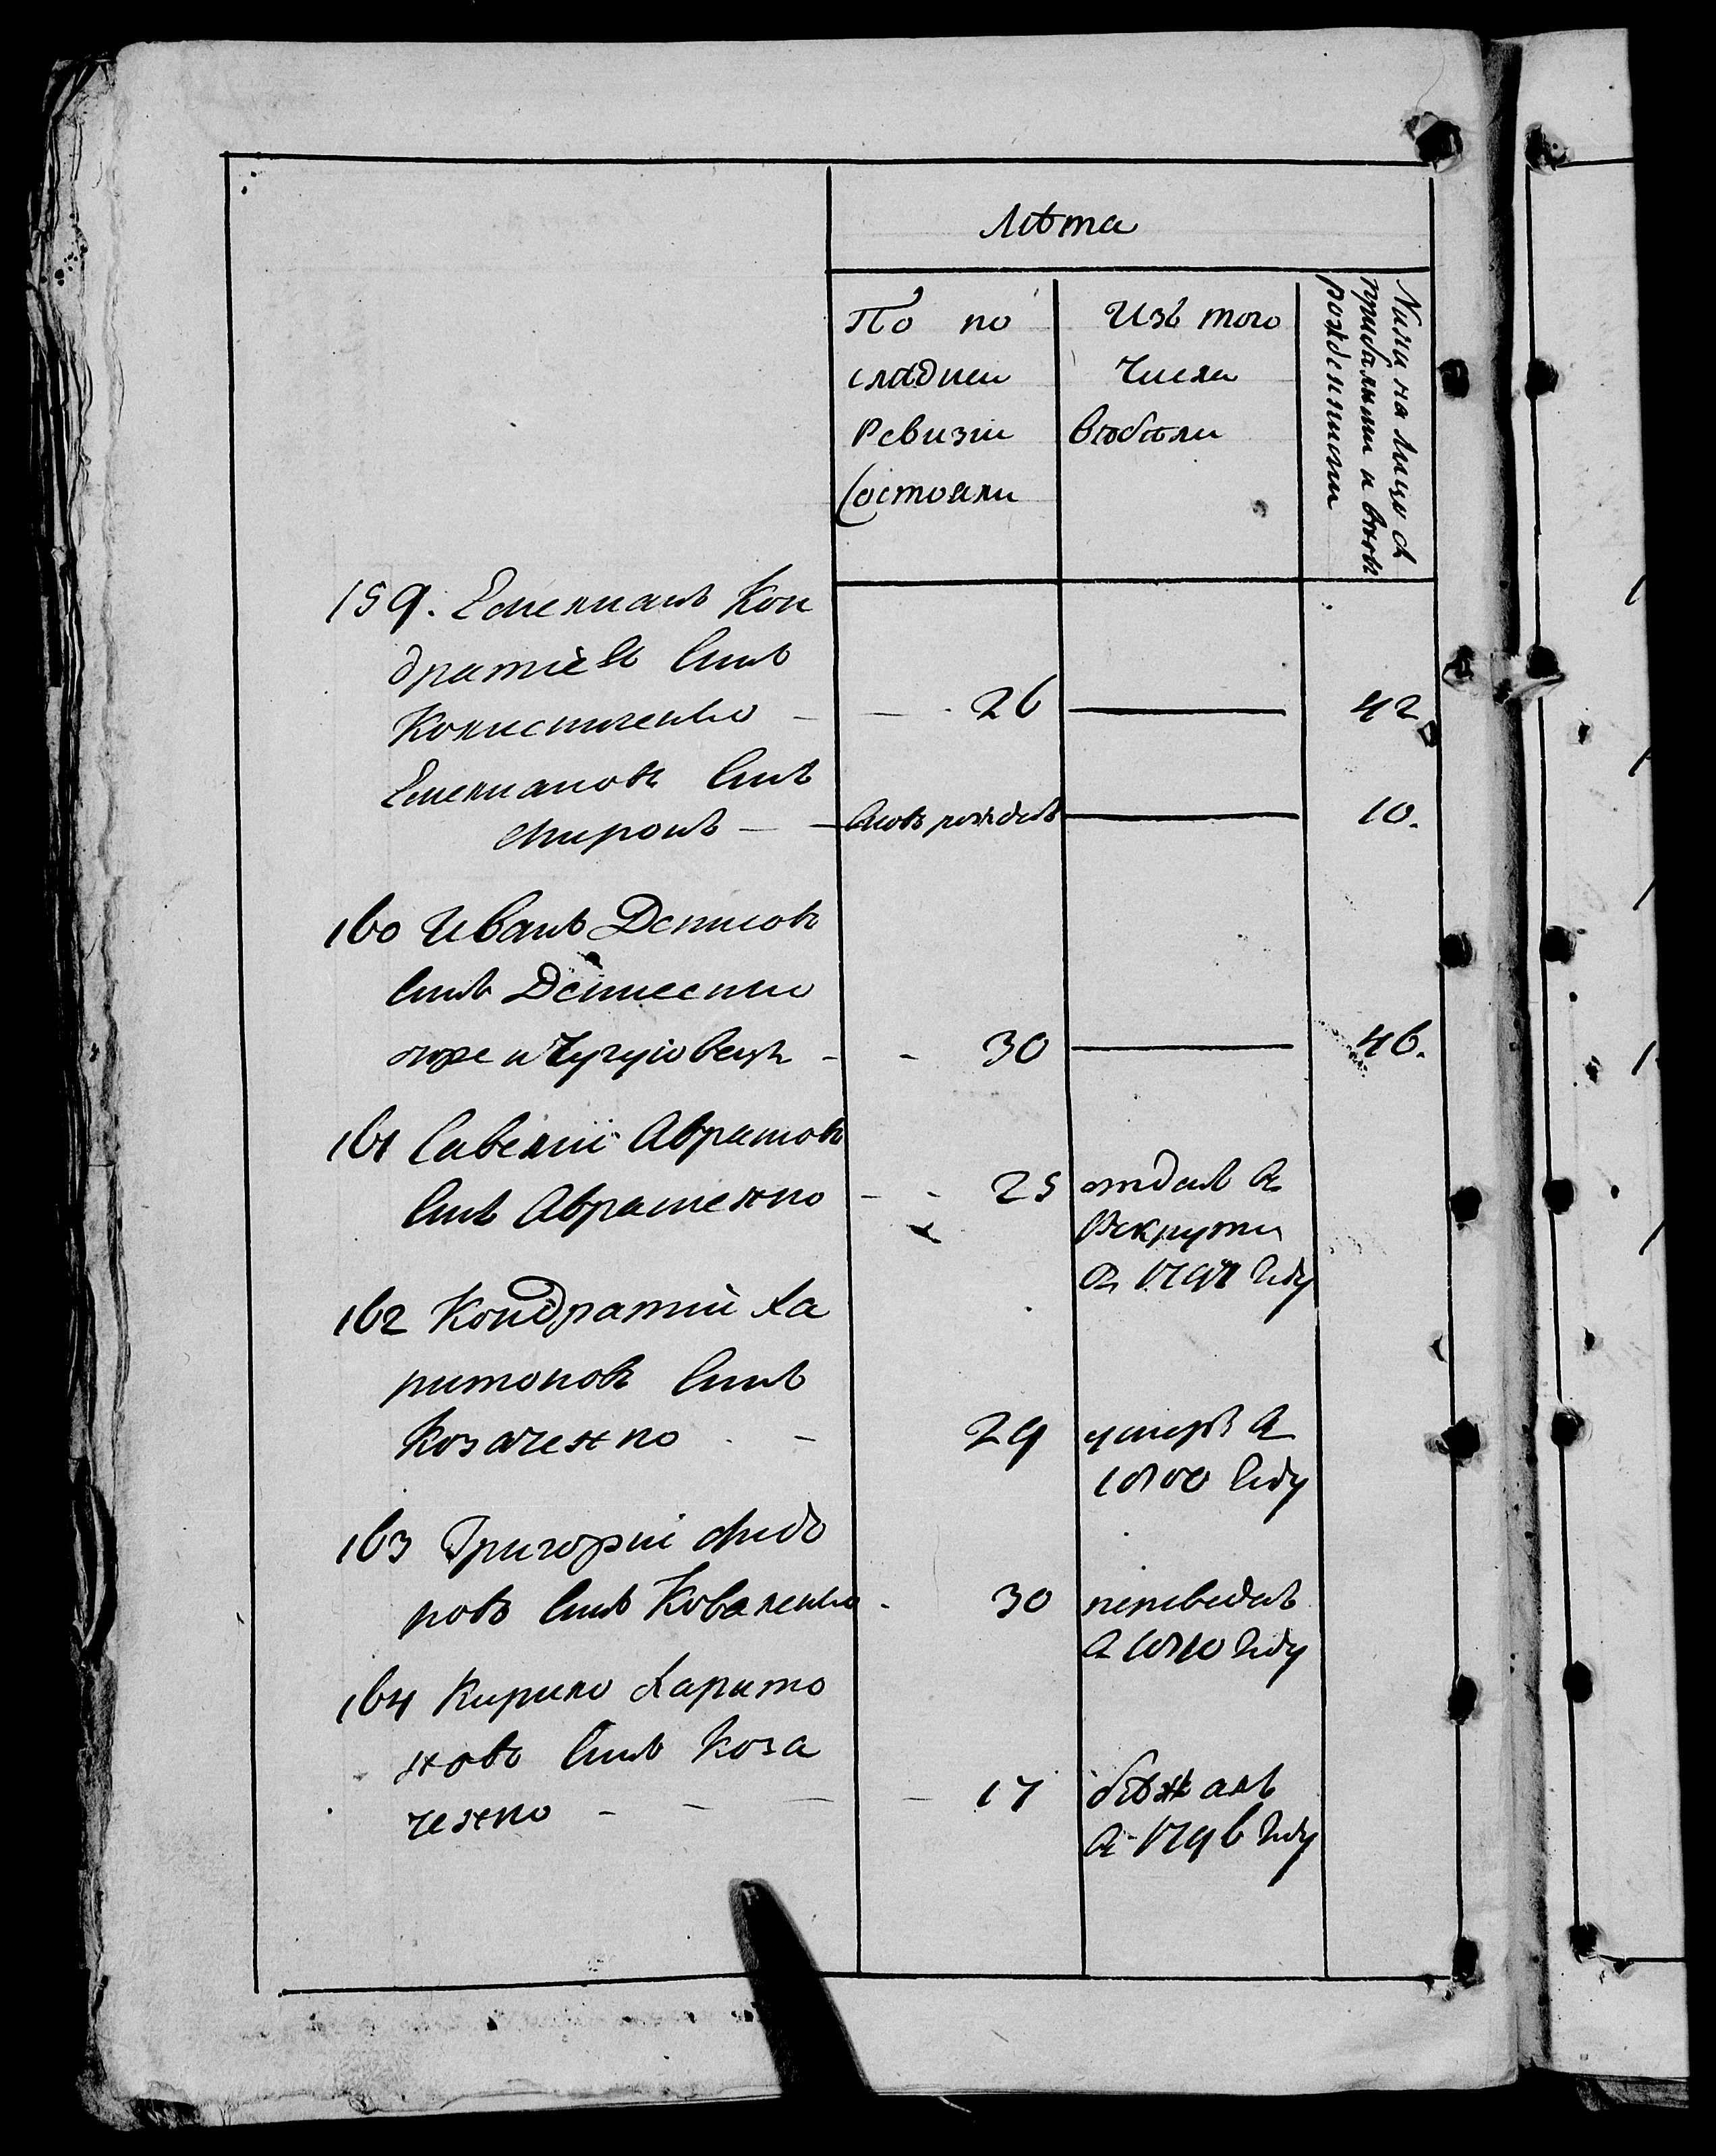 Лѣта
По по
слѣднеи
Ревизіи
Состояли
Изъ того
числа
выбыли
Ныни на лицо съ
прибылыми и вновь
рожденными
159. Емелианъ Кон
дратіевъ Сынъ
Колисниченко
26
42
Емелиановъ Сынъ
Миронъ
вновь рожденъ
10.
160 Иванъ Денисовъ
Сынъ Денисенко
онъ же и Чугуювецъ
30
46.
161 Савелий Аврамовъ
Сынъ Авраменко
25
отданъ въ
Рекруты
въ 1797 году
162 Кондратий Ха
ритоновъ Сынъ
Козаченко
29
умеръ въ
1800 году
163 Григорій Сидо
ровъ Сынъ Коваленко
30
переведенъ
въ 1810 году
164 Кирило Харито
новъ Сынъ Коза
ченко
17
бѣжалъ
въ 1796 году